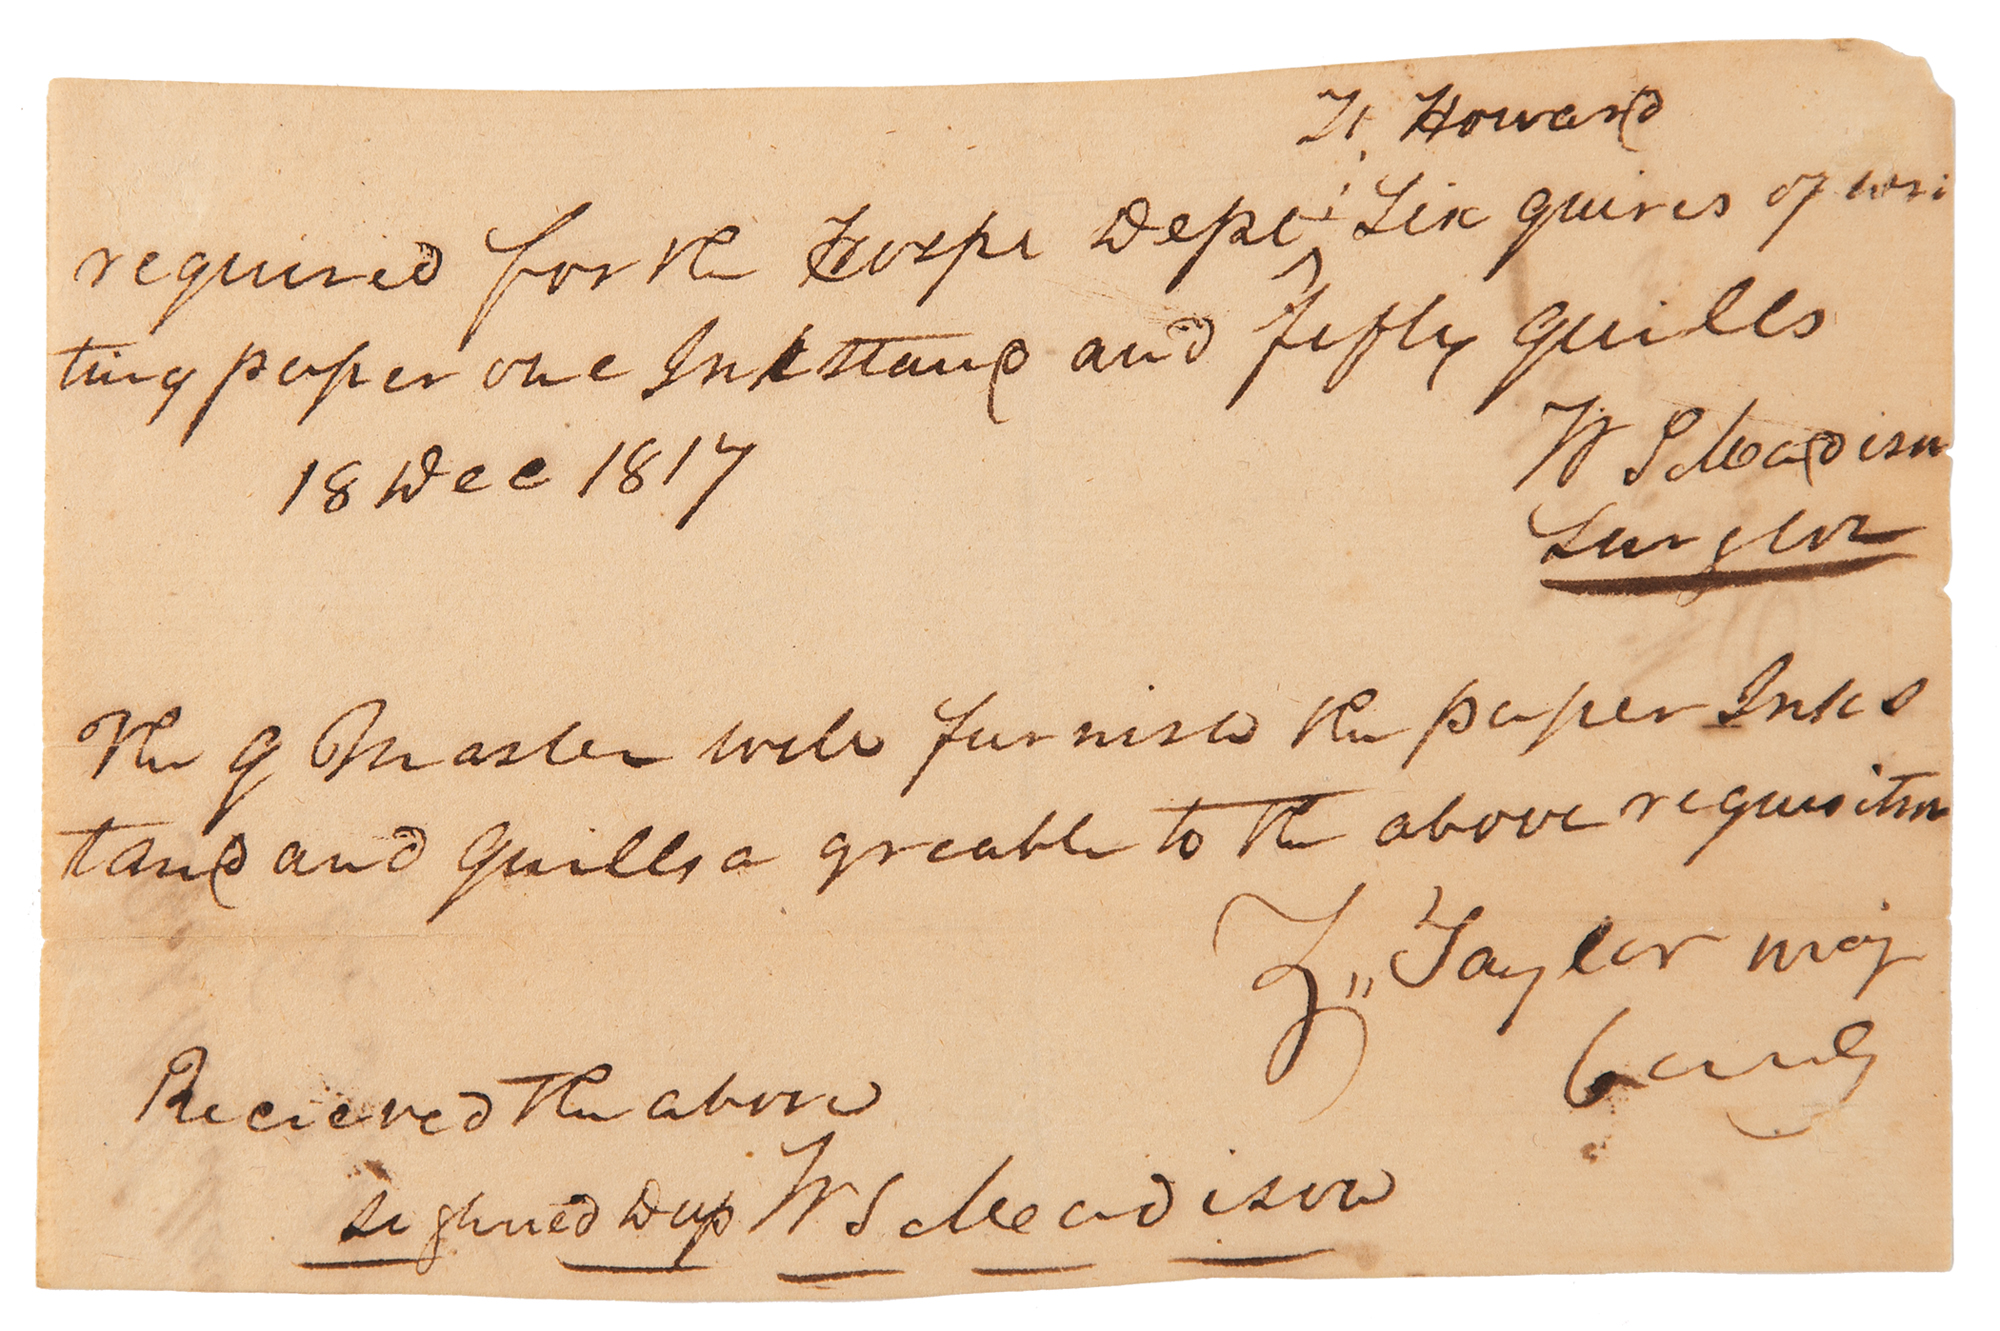 Ft. Howard
required for the Hospt Dept: Six quires of wri
ting paper one Inkstand and fifty quills
18 Dec 1817
W S Madison
Surgeon
The Q Master will furnish the paper Inks
tand and quills a greable to the above requisition
Z" Taylor maj
Comdg
Recieved the above
signed Dup W S Madison